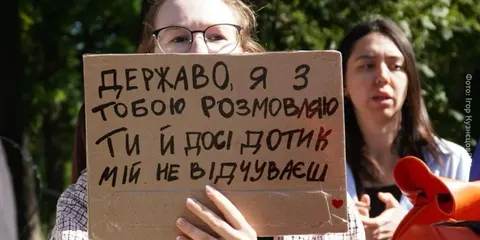 ДЕРЖАВО, Я З
ТОБОЮ РОЗМОВЛЯЮ
ТИ Й ДОСІ ДОТИК
МІЙ НЕ ВІДЧУВАЄШ
Фото: Ігор Кузнєцов